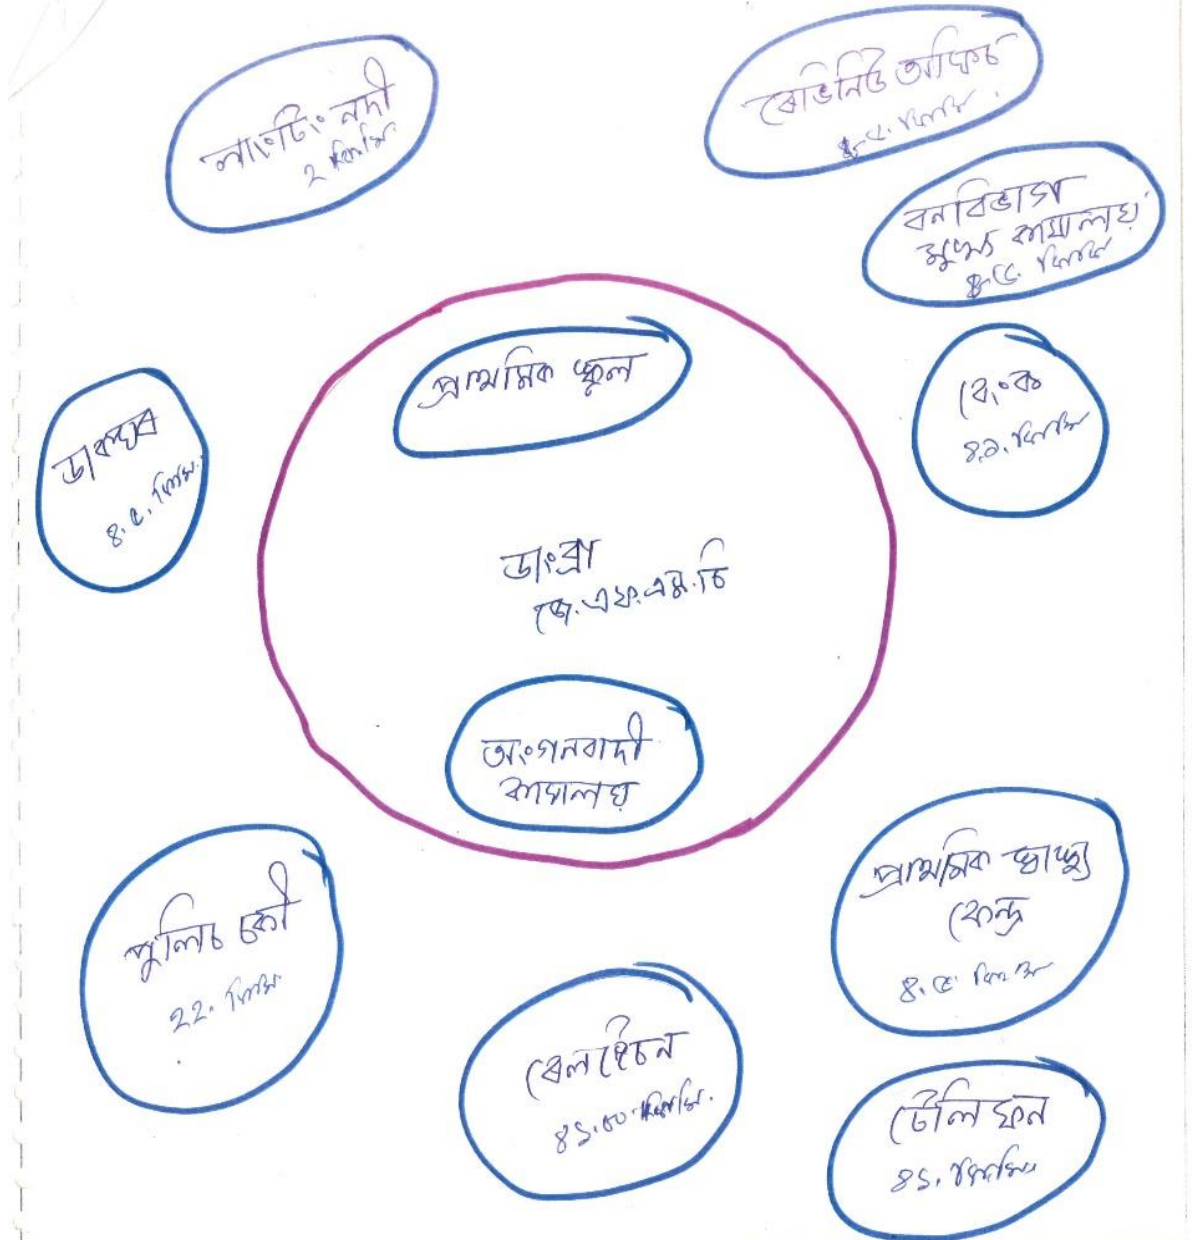 লাংটিং নদী
২ কিমি
ৰেভিনিউ অফিচ
৪.৫. কিমি.
বনবিভাগ
মুখ্য কাৰ্য্যালয়
৪.৫. কিমি
প্ৰাথমিক স্কুল
বেংক
কিমি
ডাকঘৰ
৪.৫. কিমি.
ডাংব্ৰা
জে.এফ.এম.চি
অংগনবাদী
কাৰ্যালয়
প্ৰাথমিক স্বাস্থ্য
কেন্দ্ৰ
৪.৫. কিমি
পুলিচ চকী
২২. কিমি
ৰেল ষ্টেচন
কিমি.
টেলিফন
৪১. কিমি.